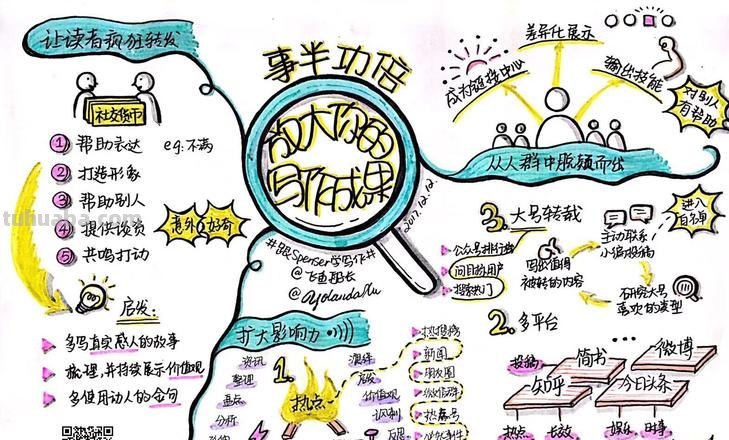 让读者疯狂转发
社交货币
1 帮助表达 eg:不满
2 打造形象
3 帮助别人
4 提供谈资
5 共鸣打动
意外 好奇
启发:
多写真实感人的故事
梳理,并持续展示价值观
多使用动人的金句
事半功倍
放大你的
写作成果
2017.12.12.
#跟Spenser学写作#
@飞鱼船长
@YolandaXu
差异化展示
成为链接中心
输出技能
对别人
有帮助
从人群中脱颖而出
3. 大号转载
公众号排行榜
问目标用户
搜索热门
写出值得
被转的内容
主动联系
小编投稿
进入
白名单
研究大号
喜欢的类型
2. 多平台
投稿
简书
微博
知乎
今日头条
热点
长效
娱乐
时事
扩大影响力
1.
热点
资讯
整理
盘点
分析
演绎
启发
价值观
识别
热搜榜
新闻
朋友圈
微信群
热点号
tuhuaba.com